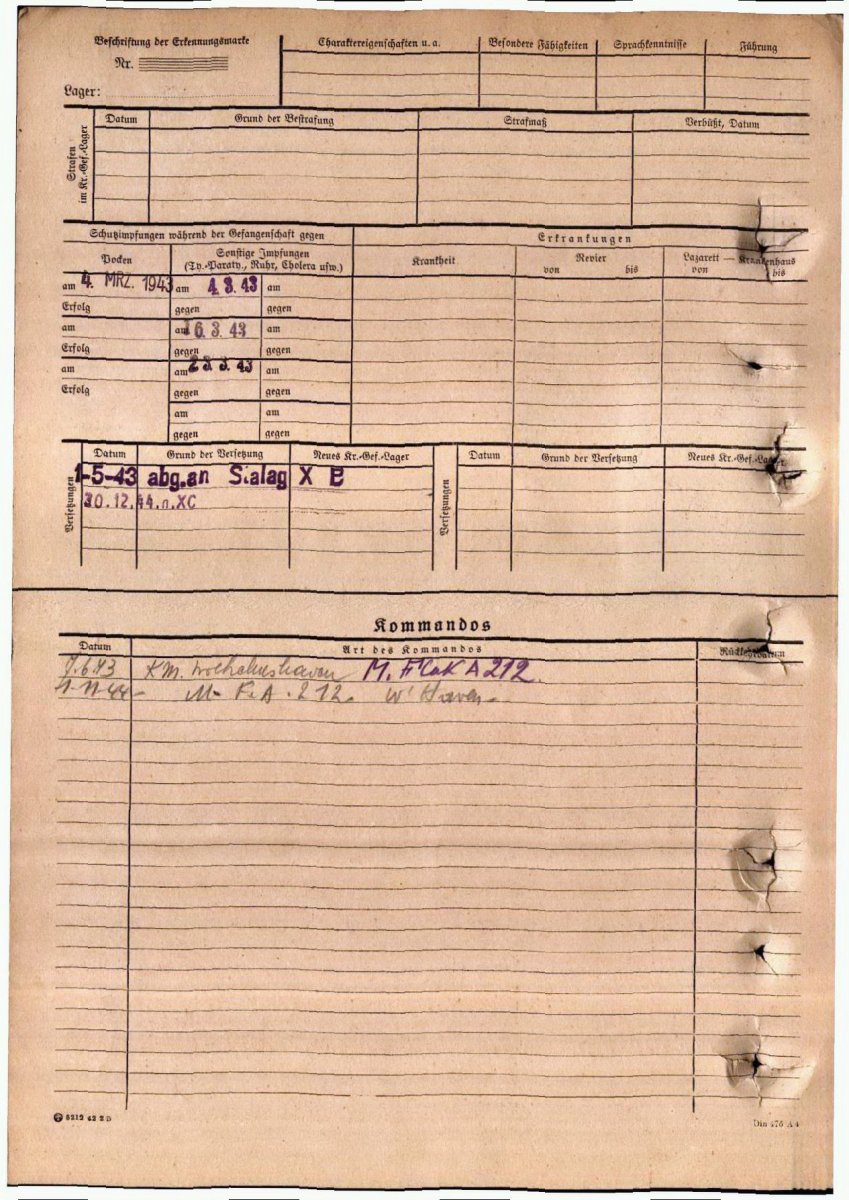 Beschriftung der Erkennungsmarke
Nr.
Lager:
Charaktereigenschaften u. a.
Besondere Fähigkeiten
Sprachkenntnisse
Führung
Strafen im Kr.-Gef.-Lager
Datum
Grund der Bestrafung
Strafmaß
Verbüßt, Datum
Schutzimpfungen während der Gefangenschaft gegen
Erkrankungen
Pocken
Sonstige Impfungen
(Ty.-Paraty., Ruhr, Cholera usw.)
Krankheit
Revier
von bis
Lazarett — Krankenhaus
von bis
am 4. MRZ. 1943 am 4. 3. 43 am
Erfolg gegen gegen
am am 16. 3. 43 am
Erfolg gegen gegen
am am 23. 3. 43 am
Erfolg gegen gegen
am am
gegen gegen
Versetzungen
Datum Grund der Versetzung Neues Kr.-Gef.-Lager
1-5-43 abg.an Stalag X B
30.12.44.n.XC
Versetzungen
Datum Grund der Versetzung Neues Kr.-Gef.-Lager
Kommandos
Datum Art des Kommandos Rückkehrdatum
7.6.43 KM. Wilhelmshaven M. Flak A 212.
11-11-44- M. F.A. 212. W'Haven-
8212 42 2 D
Din 476 A 4